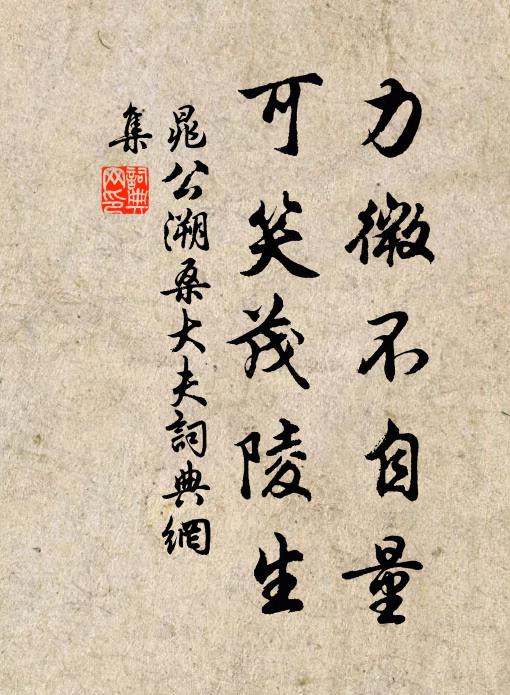 力微不自量
可笑茂陵生
晁公溯桑大夫詞典網
集
詞典網印